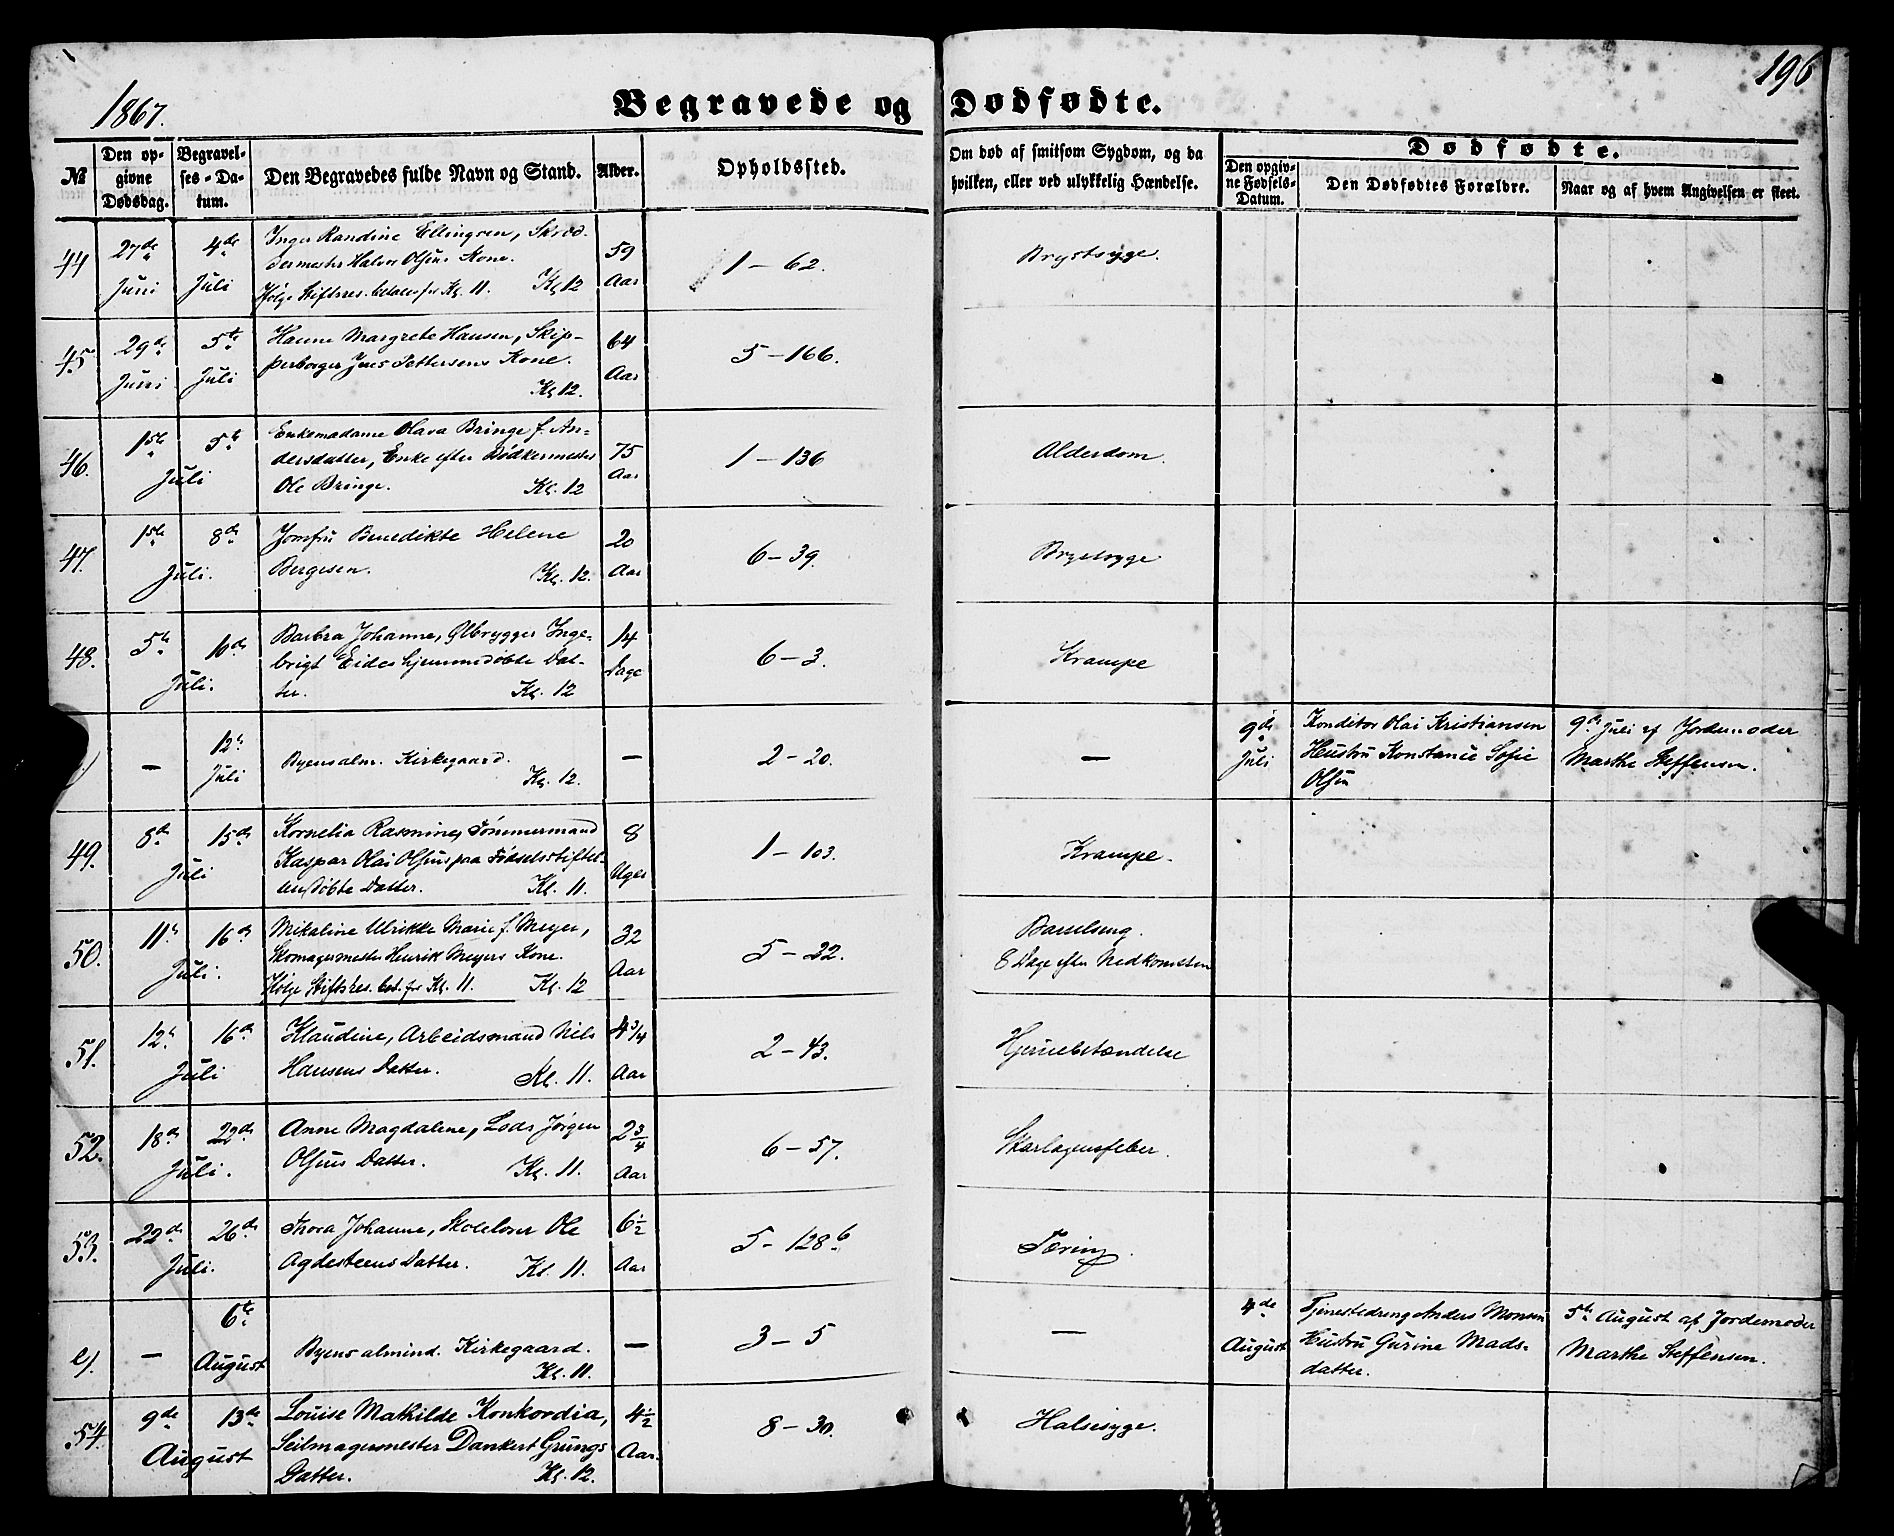 196
1867.
Begravede og Dødfødte.
№
Den opgivne Dødsdag.
Begravelses-Datum.
Den Begravedes fulde Navn og Stand.
Alder.
Opholdssted.
Om død af smitsom Sygdom, og da hvilken, eller ved ulykkelig Hændelse.
Dødfødte.
Den opgivne Fødsels-Datum.
Den Dødfødtes Forældre.
Naar og af hvem Angivelsen er skeet.
44 27de Juni 4de Juli
Inger Randine Ellingsen, Skræd-
dermester Halvor Olsens Kone.
Ifølge Stiftsres. betales for Kl. 11. Kl 12
59 Aar 1 - 62. Brystsyge.
45 29de Juni 5te Juli
Hanne Margrete Hansen, Skip-
perborger Jens Pettersens Kone.
Kl 12.
64 Aar 5 - 166.
46. 1ste 5te Juli
Enkemadame Olava Bringe f. An-
dersdatter, Enke efter Bødkermester
Ole Bringe. Kl. 12
75 Aar 1 - 136 Alderdom.
47. 1ste 8de Juli.
Jomfru Benedikte Helene
Bergesen. Kl. 12.
20 Aar 6 - 39. Brystsyge
48. 5te 10de Juli.
Barbra Johanne, Ølbrygger Inge-
brigt Eides hjemmedøbte Dat-
ter. Kl. 12
14 Dage 6 - 3. Krampe
— 12te Juli
Byens alm. Kirkegaard.
Kl. 12.
— 2 - 20. —
9de Juli
Konditor Olai Kristiansen
Hustru Konstance Sofie
Olsen
9de Juli af Jordemoder
Marthe Steffensen.
49. 8de 15de Juli
Kornelia Rasmine, Tømmermand
Kaspar Olai Olsens paa Fødselsstiftel-
sen døbte Datter. Kl. 11.
8 Uger 1 - 103. Krampe.
50. 11te 16de Juli.
Mikaline Ulrikke Marie f. Meyer,
Skomagermester Henrik Meyers Kone.
Ifølge Stiftsres. bet. for Kl. 11. Kl. 12
32 Aar 5 - 22.
Barselseng.
8 Dage efter Nedkomsten
51. 12te 16de Juli
Klaudine, Arbeidsmand Nils
Hansens Datter. Kl. 11.
4 3/4 Aar 2 - 43. Hjernebetændelse
52. 18de 22de Juli.
Anne Magdalene, Lods Jørgen
Olsens Datter. Kl. 11.
2 3/4 Aar 6 - 57. Skarlagensfeber.
53. 22de 26de Juli.
Thora Johanne, Skolelærer Ole
Agdesteens Datter. Kl. 11.
6 1/2 Aar 5 - 128b. Tæring.
e) — 6te August
Byens almind. Kirkegaard.
Kl. 11.
— 3 - 5 —
4de August
Tjenestedreng Anders Monsen
Hustru Gurine Mads-
datter.
5te August af Jordemoder
Marthe Steffensen.
54. 9de 13de August
Louise Mathilde Konkordia,
Seilmagermester Dankert Grungs
Datter. Kl. 12.
4 1/2 Aar. 8 - 30. Halssyge.